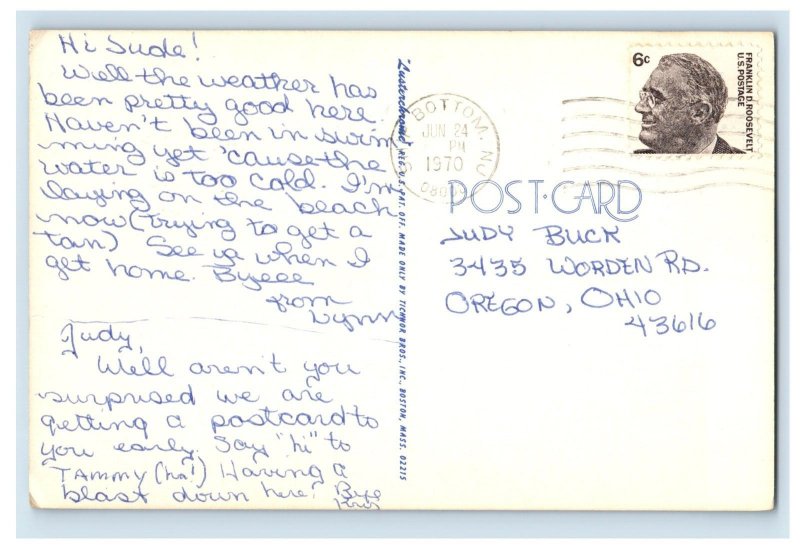 Hi Jude!
Well the weather has
been pretty good here.
Haven't been in swim
ming yet 'cause the
water is too cold. I'm
laying on the beach
now (trying to get a
tan) See ya when I
get home. Byeee
from
Lynn
Judy,
Well aren't you
surprised we are
getting a postcard to
you early. Say "hi" to
TAMMY (ha!) Having a
blast down here! Bye
"Lusterchrome" REG. U.S. PAT. OFF. MADE ONLY BY TICHNOR BROS., INC., BOSTON, MASS. 02215
BOTTOM, NJ
JUN 24
PM
1970
6c
FRANKLIN D. ROOSEVELT
U.S. POSTAGE
POST-CARD
JUDY BUCK
3435 WORDEN RD.
OREGON, OHIO
43616